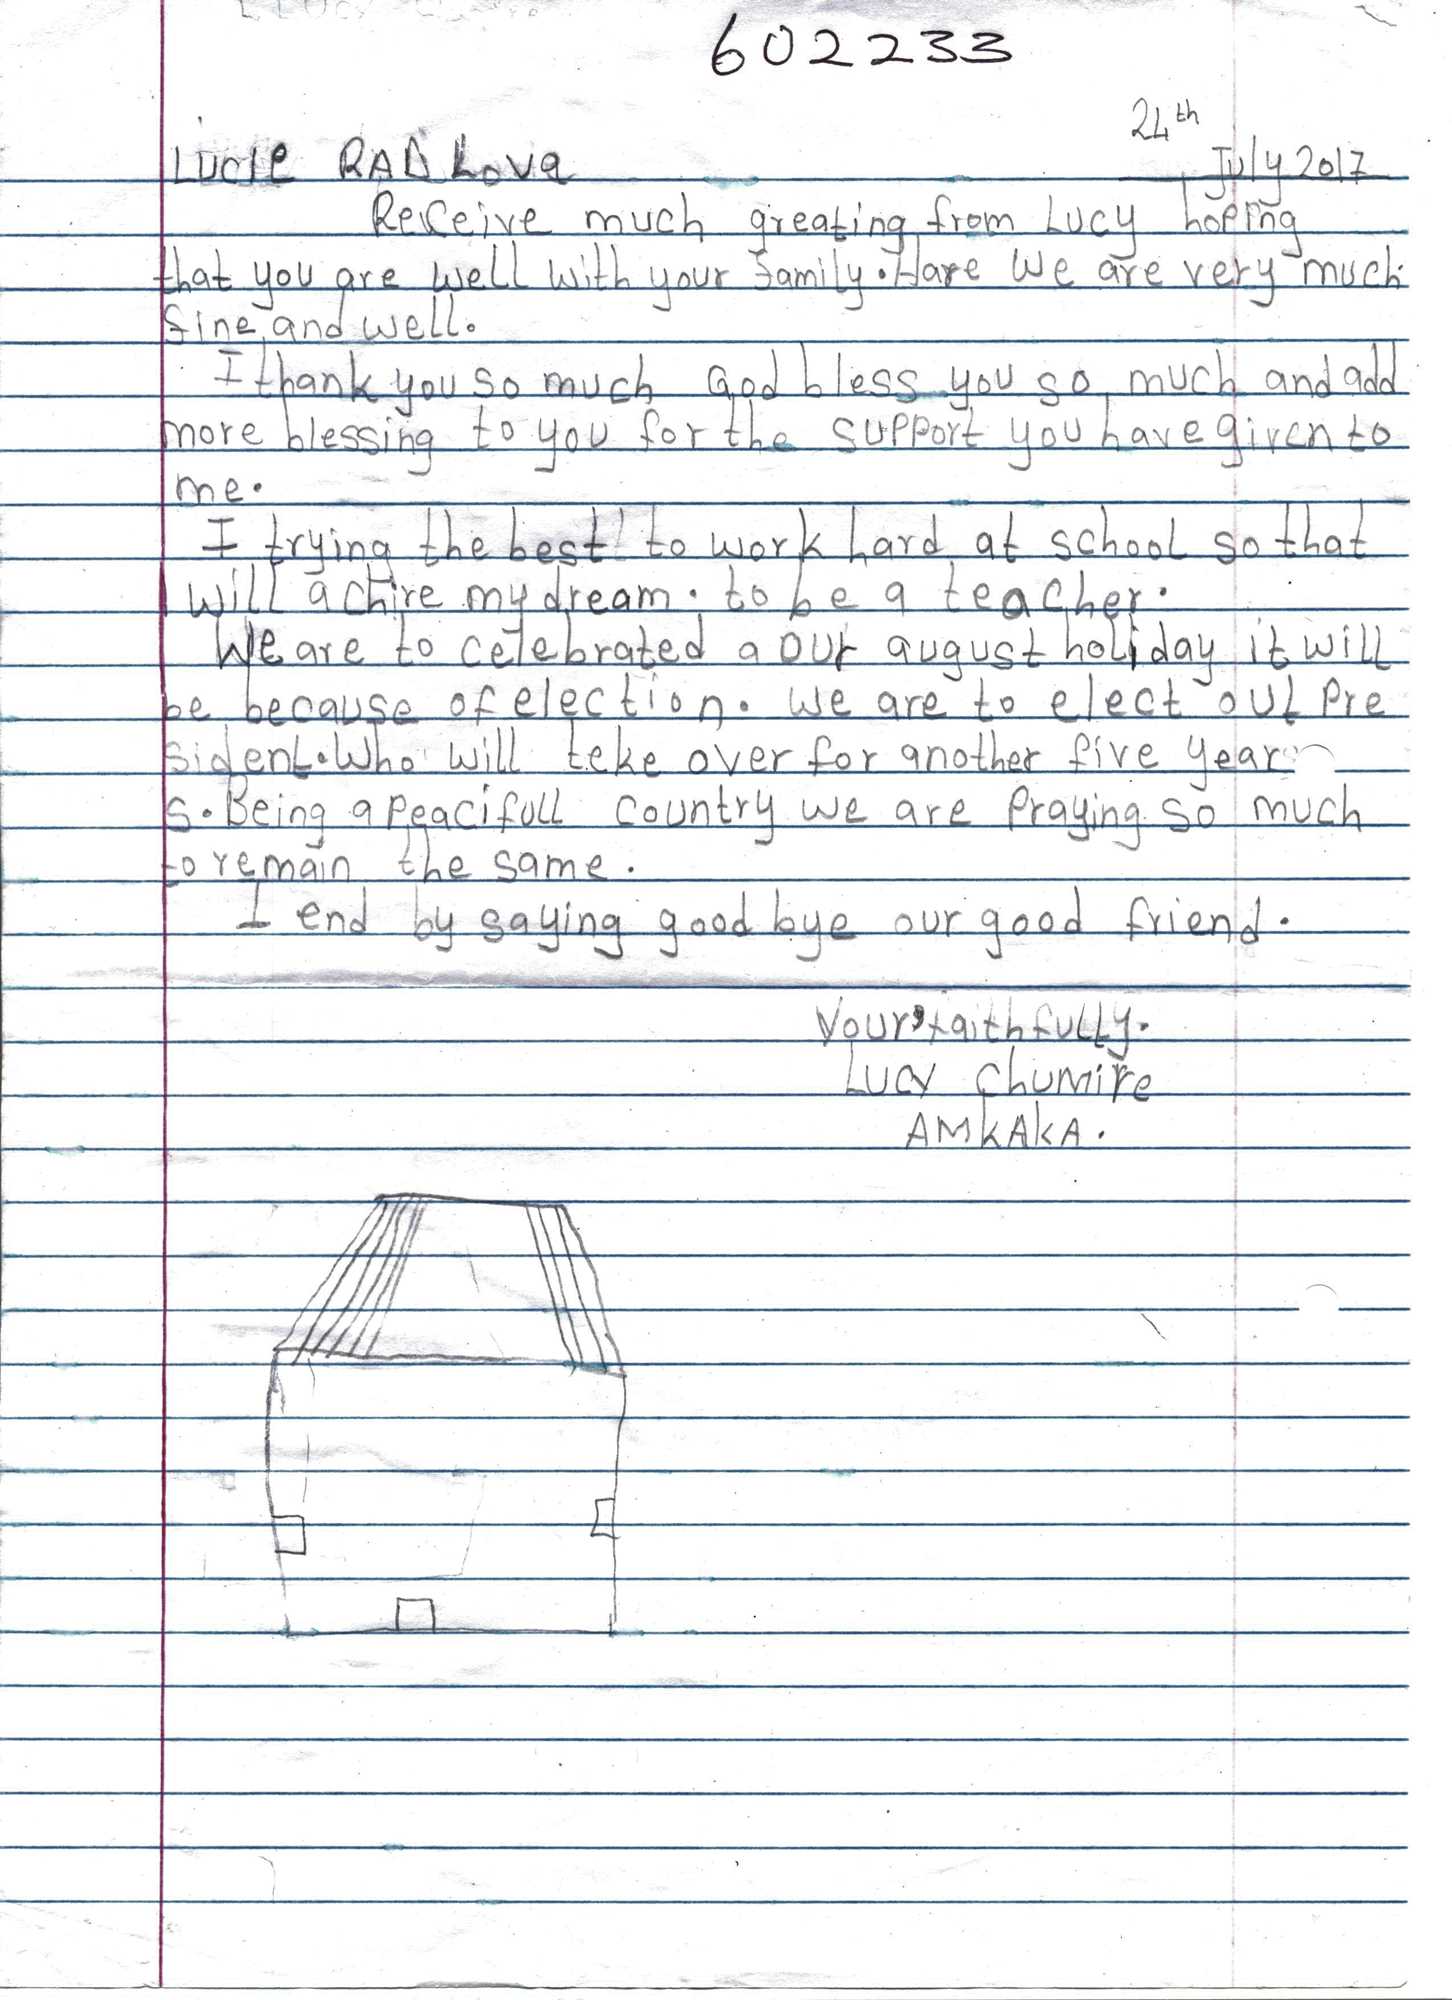 602233
24th
LUCIE RADKova July 2017
Receive much greating from Lucy hoping
that you are well with your family. Hare we are very much
fine and well.
I thank you so much God bless you so much and add
more blessing to you for the support you have given to
me.
I trying the best to work hard at school so that
will achire my dream. to be a teacher.
We are to celebrated a our august holiday it will
be because of election. We are to elect out Pre
sident. Who will teke over for another five year
s. Being a peacifull country we are praying so much
to remain the same.
I end by saying good bye our good friend.
Your, faithfully.
LUCY Chumire
AMKAKA.